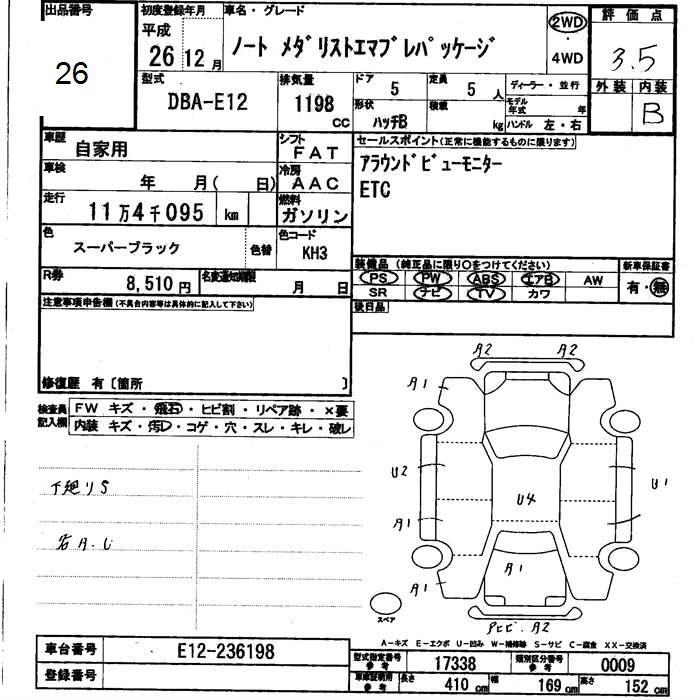 出品番号
26
初度登録年月
平成
26 12 月
車名・グレード
ノート メダリストエマブレパッケージ
2WD
・
4WD
評価点
3.5
外装 内装
B
型式
DBA-E12
排気量
1198 CC
ドア
5
定員
5 人
形状
ハッチB
積載
kg
ディーラー・並行
モデル年式 年
ハンドル 左・右
車歴
自家用
シフト
FAT
車検
年 月( 日)
冷房
AAC
走行
11万4千095 km
燃料
ガソリン
色
スーパーブラック
色替
色コード
KH3
R券
8,510 円
名変通知期限
月 日
セールスポイント(正常に機能するものに限ります)
アラウンドビューモニター
ETC
装備品 (純正品に限り〇をつけてください)
PS PW ABS エアB AW
SR ナビ TV カワ
新車保証書
有・無
後日品
注意事項申告欄(不具合内容等は具体的に記入して下さい)
修復歴 有〔箇所 〕
検査員記入欄
FW キズ・飛石・ヒビ割・リペア跡・×要
内装 キズ・汚レ・コゲ・穴・スレ・キレ・破レ
下廻りS
A2 A2
A1
U2
U1
U4
A1
A1
A1
A2
スペア
A-キズ E-エクボ U-凹み W-補修跡 S-サビ C-腐食 XX-交換済
車台番号
E12-236198
登録番号
型式指定番号
参考
17338
類別区分番号
参考
0009
車庫証明用
参考
長さ
410 cm
幅
169 cm
高さ
152 cm